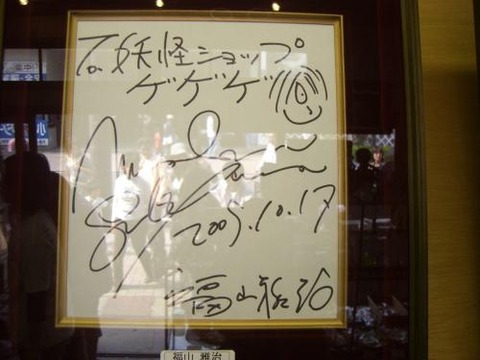 To.妖怪ショップ
ゲゲゲ
2005.10.17
福山雅治
福山 雅治